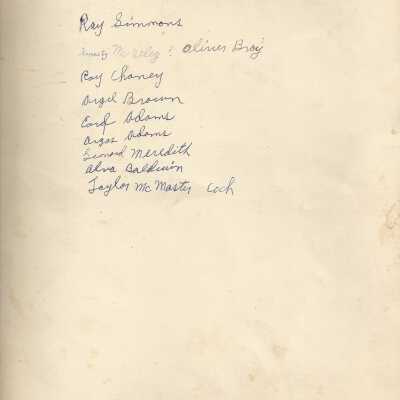 Ray Simmons
Mc ? Oliver Bray
Roy Chaney
Argil Brown
Carl Adams
Argas Adams
Leonard Meredith
Alva Baldwin
Taylor McMaster Coch